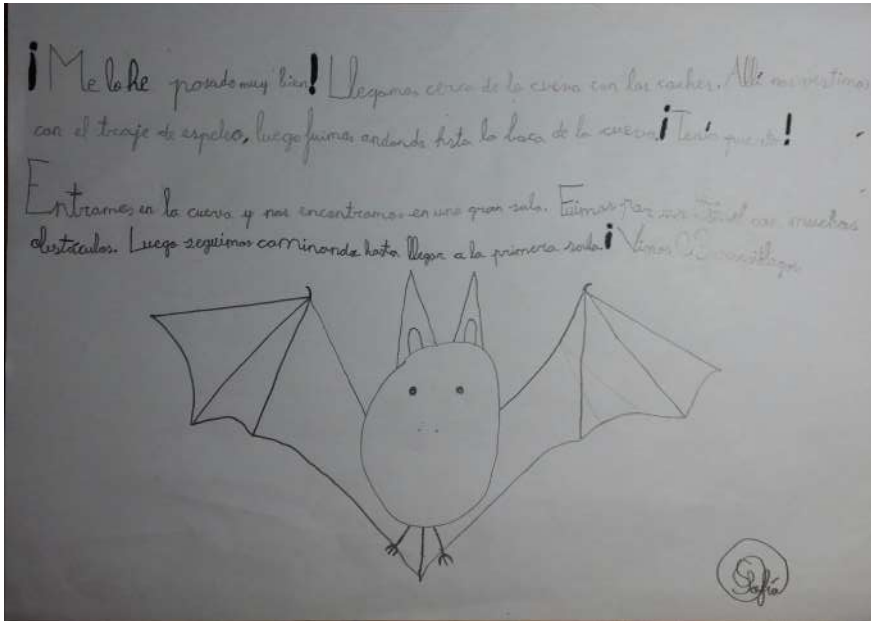 ¡Me lo he pasado muy bien! Llegamos cerca de la cueva con los coches. Allí nos vestimos
con el traje de espeleo, luego fuimos andando hasta la boca de la cueva. ¡Tenía que
Entramos en la cueva y nos encontramos en una gran sala. Fuimos por un túnel con muchos
obstáculos. Luego seguimos caminando hasta llegar a la primera sala ¡Vimos murciélagos
Sofía